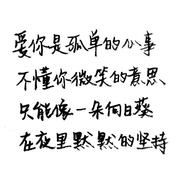 爱你是孤单的心事
不懂你微笑的意思
只能像一朵向日葵
在夜里默默的坚持